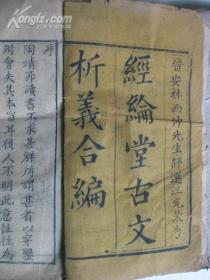 晉安林西仲先生評選
經綸堂古文
析義合編
序
陶靖節讀書不求甚解所謂甚者以穿鑿
附會失其本旨耳後人不明此意往往為